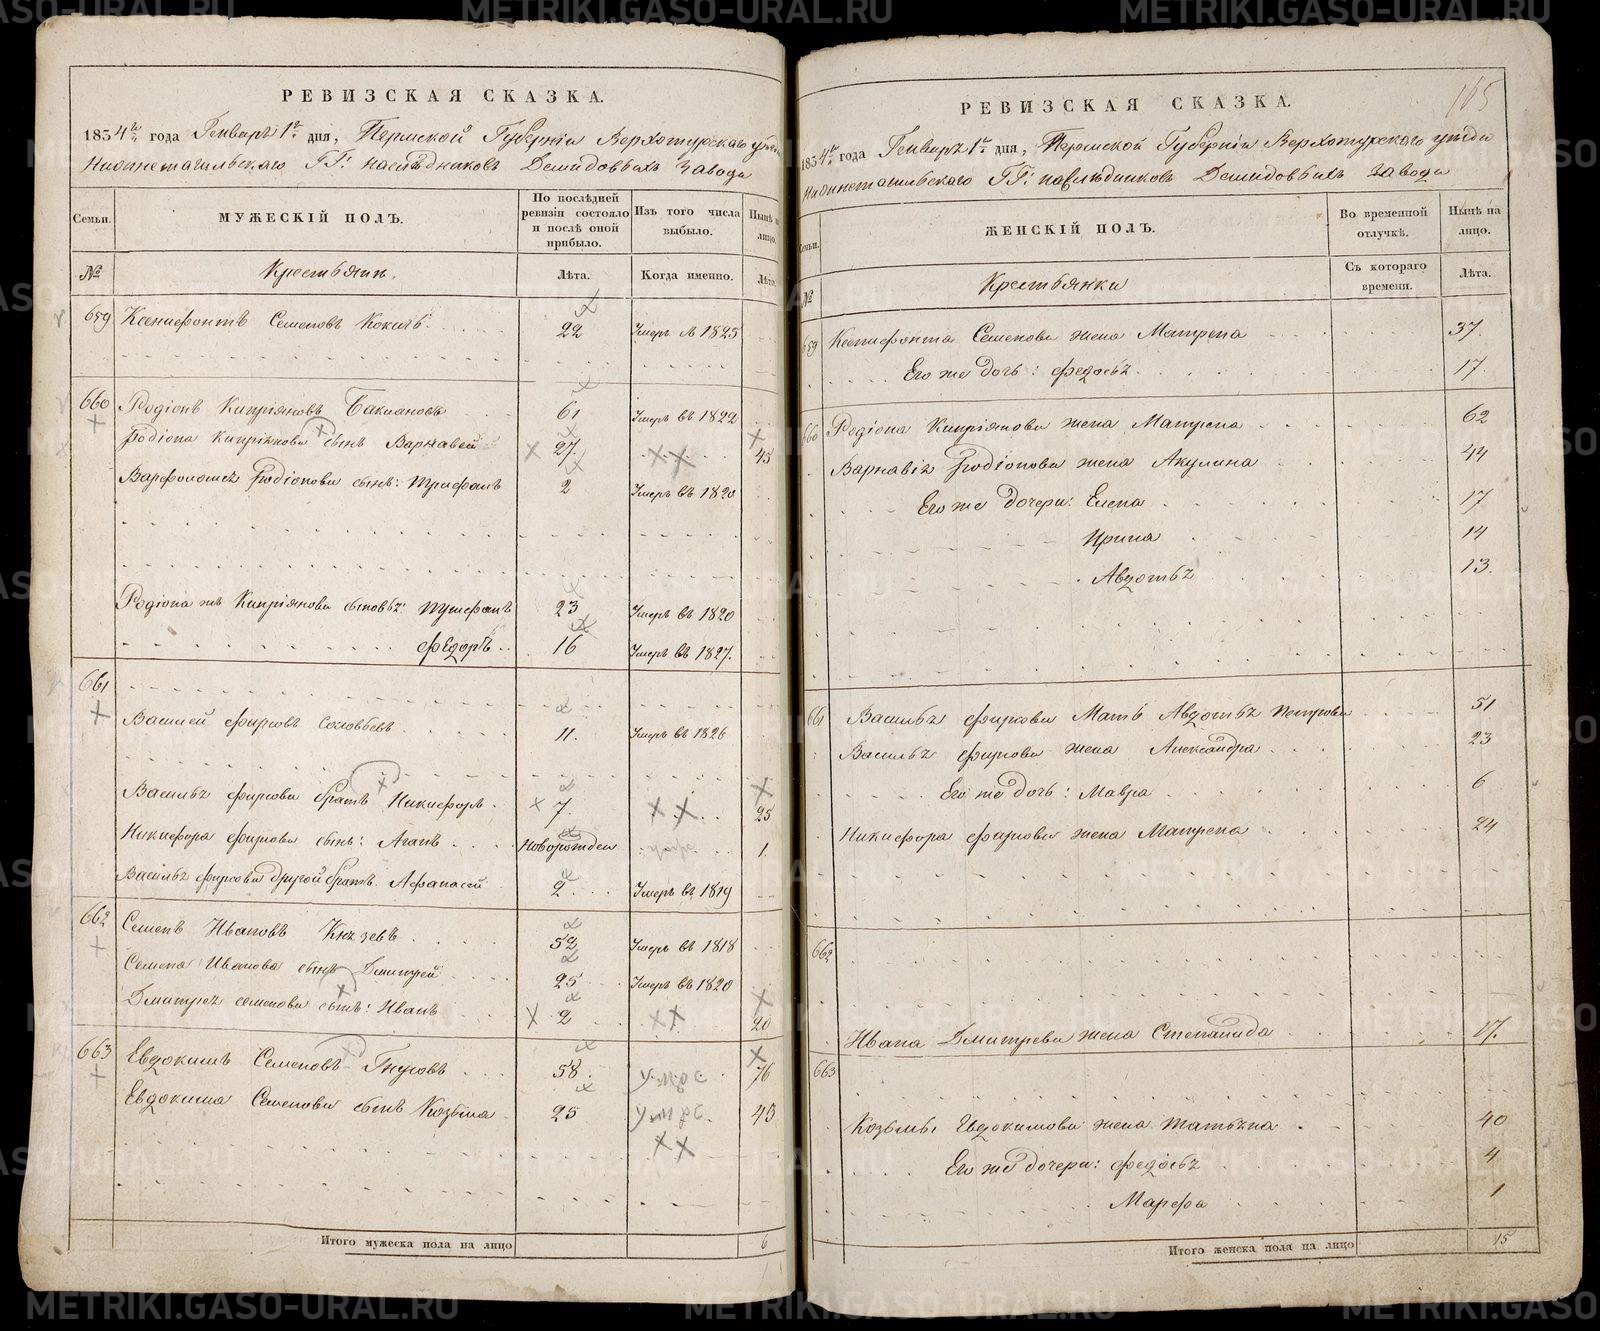 РЕВИЗСКАЯ СКАЗКА.
1834 года Генваря 1 дня, Пермской Губерніи Верхотурскаго
Нижнетагильскаго ГГ: наслѣдниковъ Демидовыхъ завода
Семьи. МУЖЕСКІЙ ПОЛЪ. По послѣдней ревизіи состояло и послѣ оной прибыло. Изъ того числа выбыло. Нынѣ на лицо.
№ Крестьянъ. Лѣта. Когда именно. Лѣта.
659 Ксенифонтъ Семеновъ 22 Умеръ въ 1825
660 Родіонъ Кипріяновъ Бакшановъ 61 Умеръ въ 1822
Родіона Кипріянова сынъ Варнавей 27. 45
Варфоломея Родіонова сынъ: Трифанъ 2 Умеръ въ 1820
Родіона же Кипріянова сыновья: 23 Умеръ въ 1820
Федоръ 16 Умеръ въ 1827.
661
Василей Фирсовъ Соловьевъ 11. Умеръ въ 1826
Василья Фирсова братъ Никифоръ. 7. 25
Никифора Фирсова сынъ: Агапъ Новорожден 1.
Василья Фирсова другой братъ. Афанасей 2 Умеръ въ 1819
662 Семенъ Ивановъ Князевъ 52 Умеръ въ 1818
Семена Иванова сынъ Дмитрей 25 Умеръ въ 1820
Дмитрея Семенова сынъ: Иванъ 2 20
663 Евдокимъ Семеновъ Гнусовъ 58. 76
Евдокима Семенова сынъ Козьма 25 43
Итого мужеска пола на лицо 6
165
РЕВИЗСКАЯ СКАЗКА.
1834 года Генваря 1 дня, Пермской Губерніи Верхотурскаго уѣзда
Нижнетагильскаго ГГ: наслѣдниковъ Демидовыхъ завода
Семьи. ЖЕНСКІЙ ПОЛЪ. Во временной отлучкѣ. Нынѣ на лицо.
№ Крестьянки Съ котораго времени. Лѣта.
659 Ксенифонта Семенова жена Матрена 37.
Его же дочь: Федосья 17.
660 Родіона Кипріянова жена Матрена 62
Варнавея Родіонова жена Акулина 44
Его же дочери: Елена 17
Ирина 14
Авдотья 13.
661 Василья Фирсова Мать Авдотья Петрова 51
Василья Фирсова жена Александра 23
Его же дочь: Мавра 6
Никифора Фирсова жена Матрена 24
662
Ивана Дмитрева жена Степанида 17.
663
Козьмы Евдокимова жена Татьяна 40
Его же дочери: Федосья 4
Марфа 1
Итого женска пола на лицо 15
METRIKI.GASO-URAL.RU